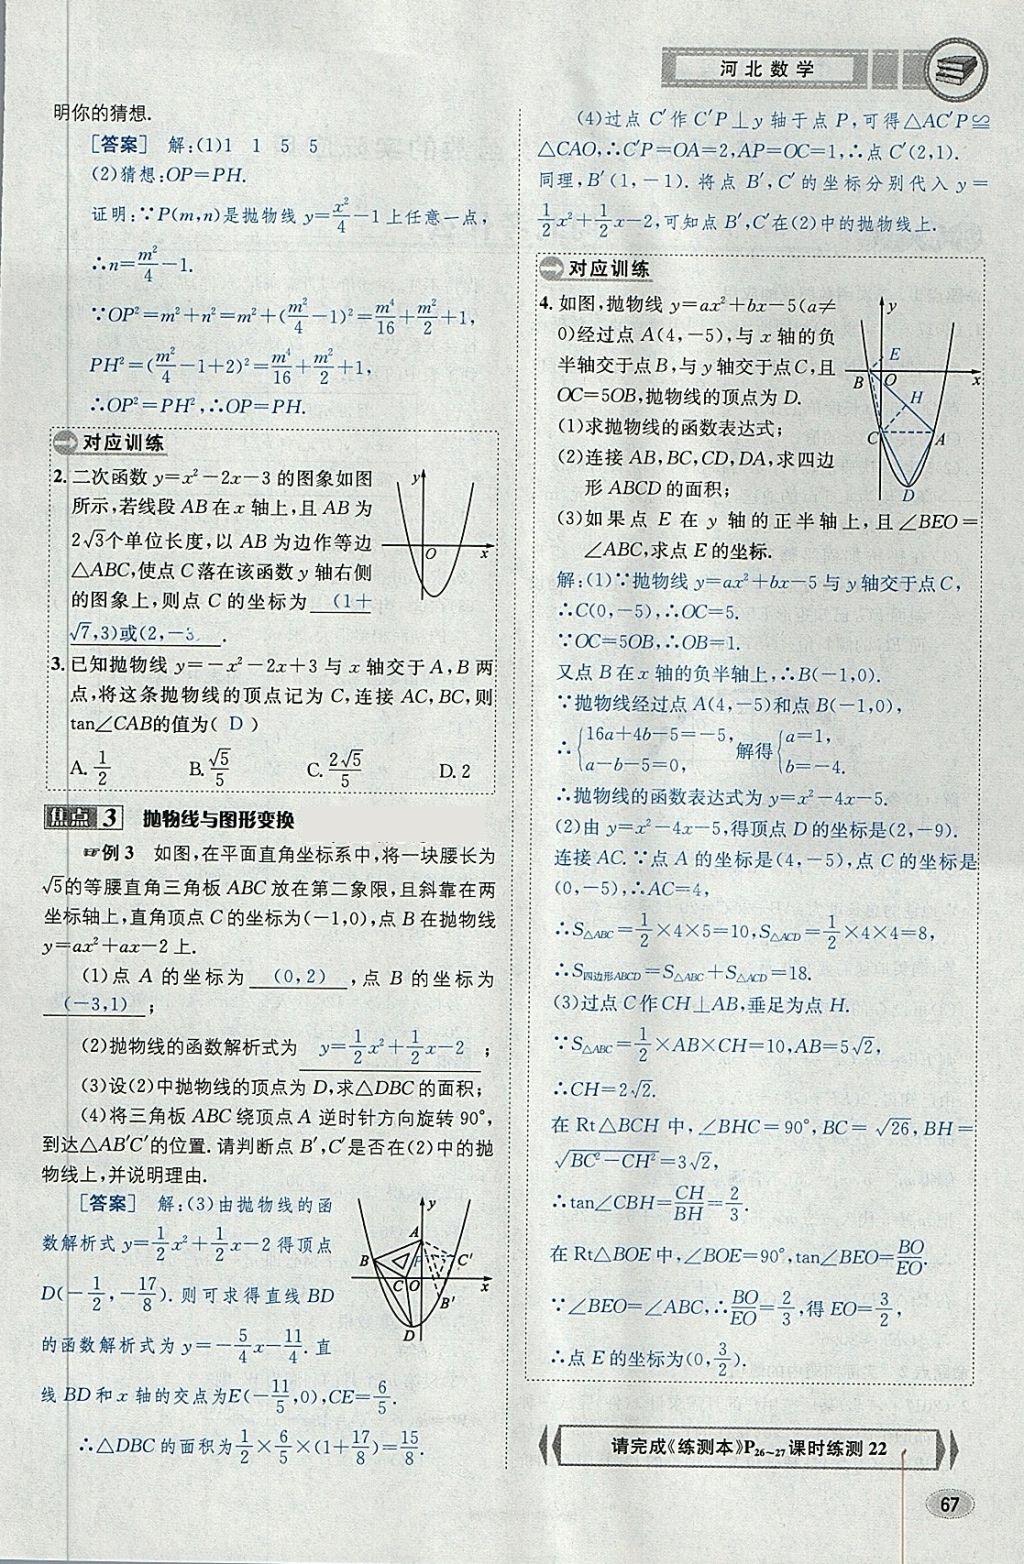 河北数学
明你的猜想.
[答案] 解:(1)1 1 5 5
(2)猜想:OP=PH.
证明:∵P(m,n)是抛物线y=x²/4-1上任意一点,
∴n=m²/4-1.
∵OP²=m²+n²=m²+(m²/4-1)²=m⁴/16+m²/2+1,
PH²=(m²/4-1+2)²=m⁴/16+m²/2+1,
∴OP²=PH²,∴OP=PH.
对应训练
2.二次函数y=x²-2x-3的图象如图
所示,若线段AB在x轴上,且AB为
2√3个单位长度,以AB为边作等边
△ABC,使点C落在该函数y轴右侧
的图象上,则点C的坐标为 (1+
√7,3)或(2,-3 .
y
O
x
3.已知抛物线y=-x²-2x+3与x轴交于A,B两
点,将这条抛物线的顶点记为C,连接AC,BC,则
tan∠CAB的值为( D )
A.1/2 B.√5/5 C.2√5/5 D.2
焦点3 抛物线与图形变换
☞例3 如图,在平面直角坐标系中,将一块腰长为
√5的等腰直角三角板ABC放在第二象限,且斜靠在两
坐标轴上,直角顶点C的坐标为(-1,0),点B在抛物线
y=ax²+ax-2上.
(1)点A的坐标为 (0,2) ,点B的坐标为
(-3,1) ;
(2)抛物线的函数解析式为 y=1/2x²+1/2x-2 ;
(3)设(2)中抛物线的顶点为D,求△DBC的面积;
(4)将三角板ABC绕顶点A逆时针方向旋转90°,
到达△AB′C′的位置.请判断点B′,C′是否在(2)中的抛
物线上,并说明理由.
[答案] 解:(3)由抛物线的函
数解析式y=1/2x²+1/2x-2得顶点
D(-1/2,-17/8).则可求得直线BD
的函数解析式为y=-5/4x-11/4.直
线BD和x轴的交点为E(-11/5,0),CE=6/5.
∴△DBC的面积为1/2×6/5×(1+17/8)=15/8.
y
A
B
P
C′
C O
x
B′
D
(4)过点C′作C′P⊥y轴于点P,可得△AC′P≌
△CAO,∴C′P=OA=2,AP=OC=1,∴点C′(2,1).
同理,B′(1,-1).将点B′,C′的坐标分别代入y=
1/2x²+1/2x-2,可知点B′,C′在(2)中的抛物线上.
对应训练
4.如图,抛物线y=ax²+bx-5(a≠
0)经过点A(4,-5),与x轴的负
半轴交于点B,与y轴交于点C,且
OC=5OB,抛物线的顶点为D.
(1)求抛物线的函数表达式;
(2)连接AB,BC,CD,DA,求四边
形ABCD的面积;
(3)如果点E在y轴的正半轴上,且∠BEO=
∠ABC,求点E的坐标.
y
E
B O
x
H
C
A
D
解:(1)∵抛物线y=ax²+bx-5与y轴交于点C,
∴C(0,-5),∴OC=5.
∵OC=5OB,∴OB=1.
又点B在x轴的负半轴上,∴B(-1,0).
∵抛物线经过点A(4,-5)和点B(-1,0),
∴{16a+4b-5=-5, a-b-5=0, 解得{a=1, b=-4.
∴抛物线的函数表达式为y=x²-4x-5.
(2)由y=x²-4x-5,得顶点D的坐标是(2,-9).
连接AC.∵点A的坐标是(4,-5),点C的坐标是
(0,-5),∴AC=4,
∴S△ABC=1/2×4×5=10,S△ACD=1/2×4×4=8,
∴S四边形ABCD=S△ABC+S△ACD=18.
(3)过点C作CH⊥AB,垂足为点H.
∵S△ABC=1/2×AB×CH=10,AB=5√2,
∴CH=2√2.
在Rt△BCH中,∠BHC=90°,BC=√26,BH=
√BC²-CH²=3√2,
∴tan∠CBH=CH/BH=2/3.
在Rt△BOE中,∠BOE=90°,tan∠BEO=BO/EO.
∵∠BEO=∠ABC,∴BO/EO=2/3,得EO=3/2,
∴点E的坐标为(0,3/2).
请完成《练测本》P26~27课时练测22
67